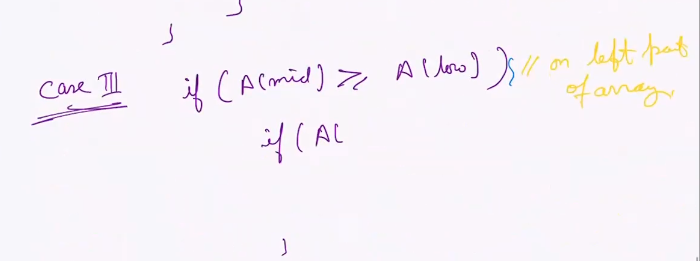 }
}
Case III if (A[mid] >= A[low]) { // on left part
of array
if (A[
}